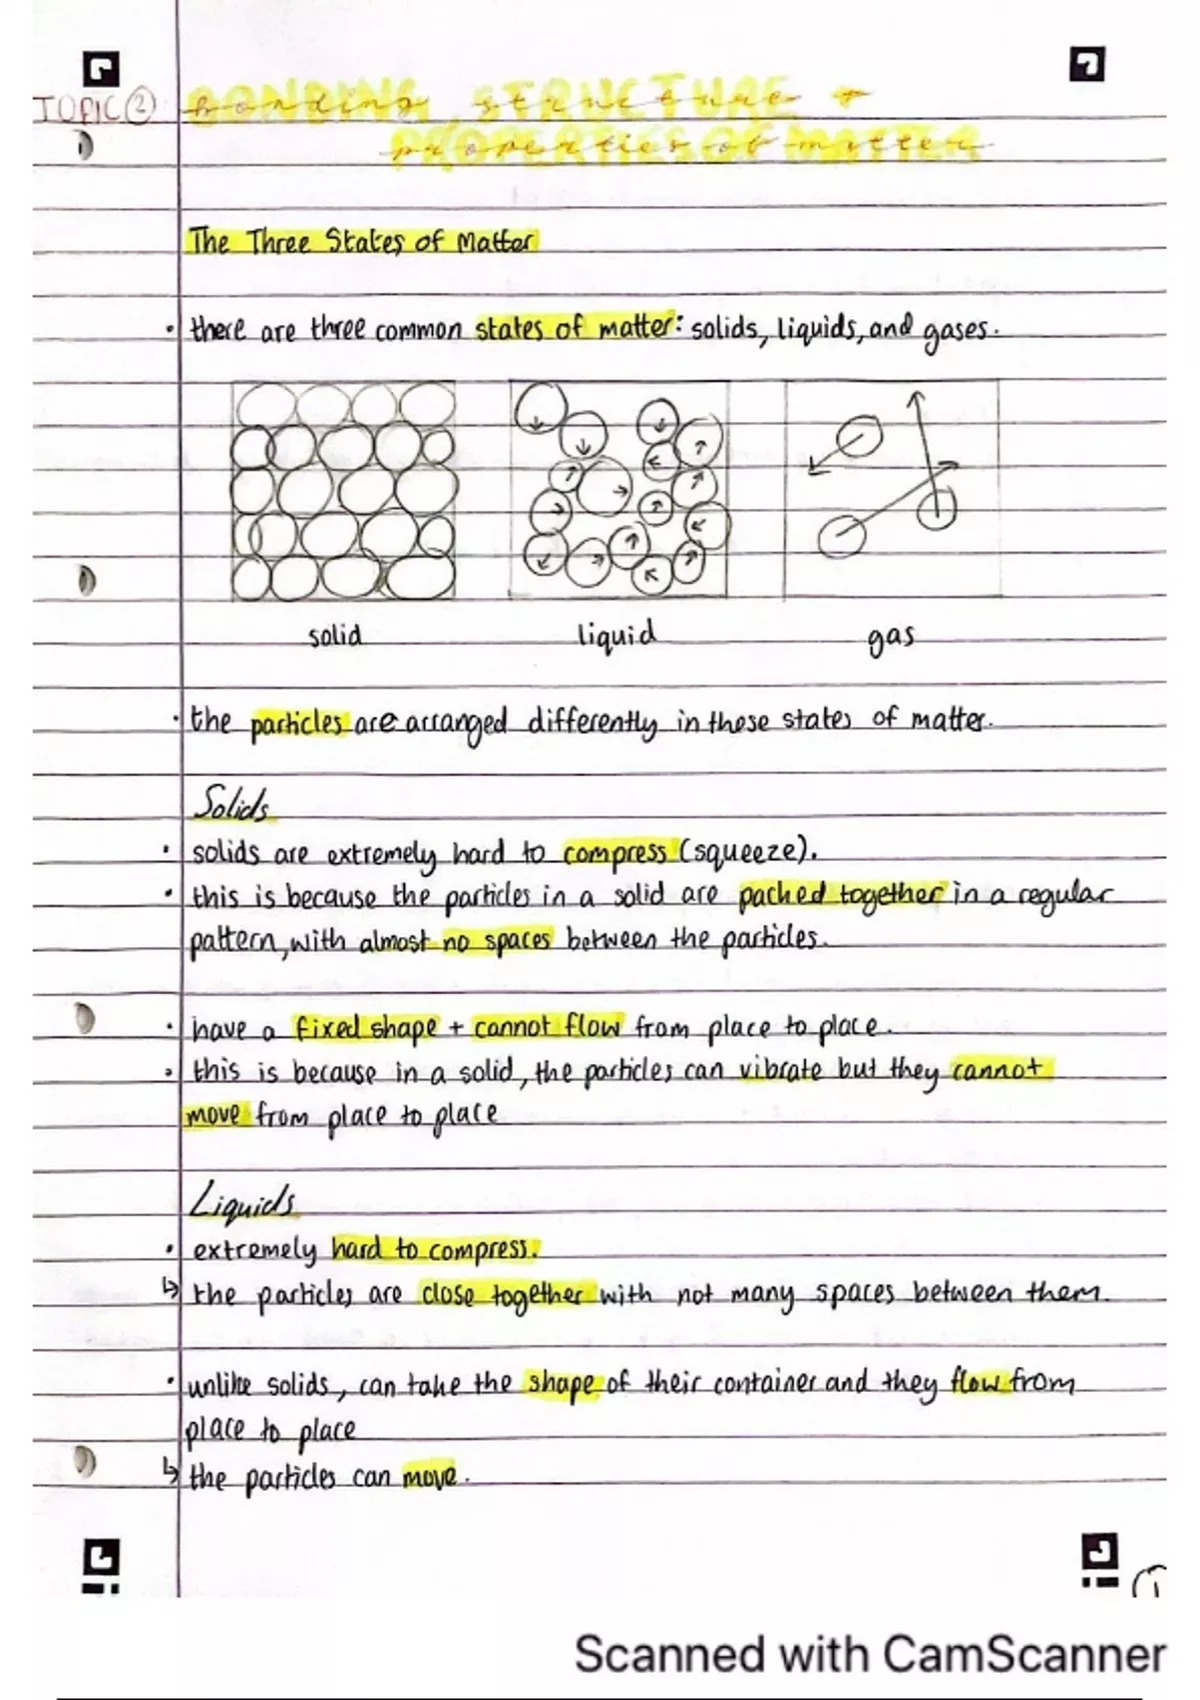 TOPIC 2 BONDING, STRUCTURE +
PROPERTIES OF MATTER
The Three States of Matter
• there are three common states of matter: solids, liquids, and gases.
solid liquid gas
• the particles are arranged differently in these states of matter.
Solids
• solids are extremely hard to compress (squeeze).
• this is because the particles in a solid are packed together in a regular
pattern, with almost no spaces between the particles.
• have a fixed shape + cannot flow from place to place.
• this is because in a solid, the particles can vibrate but they cannot
move from place to place
Liquids
• extremely hard to compress.
↳ the particles are close together with not many spaces between them.
• unlike solids, can take the shape of their container and they flow from
place to place
↳ the particles can move.
1
Scanned with CamScanner